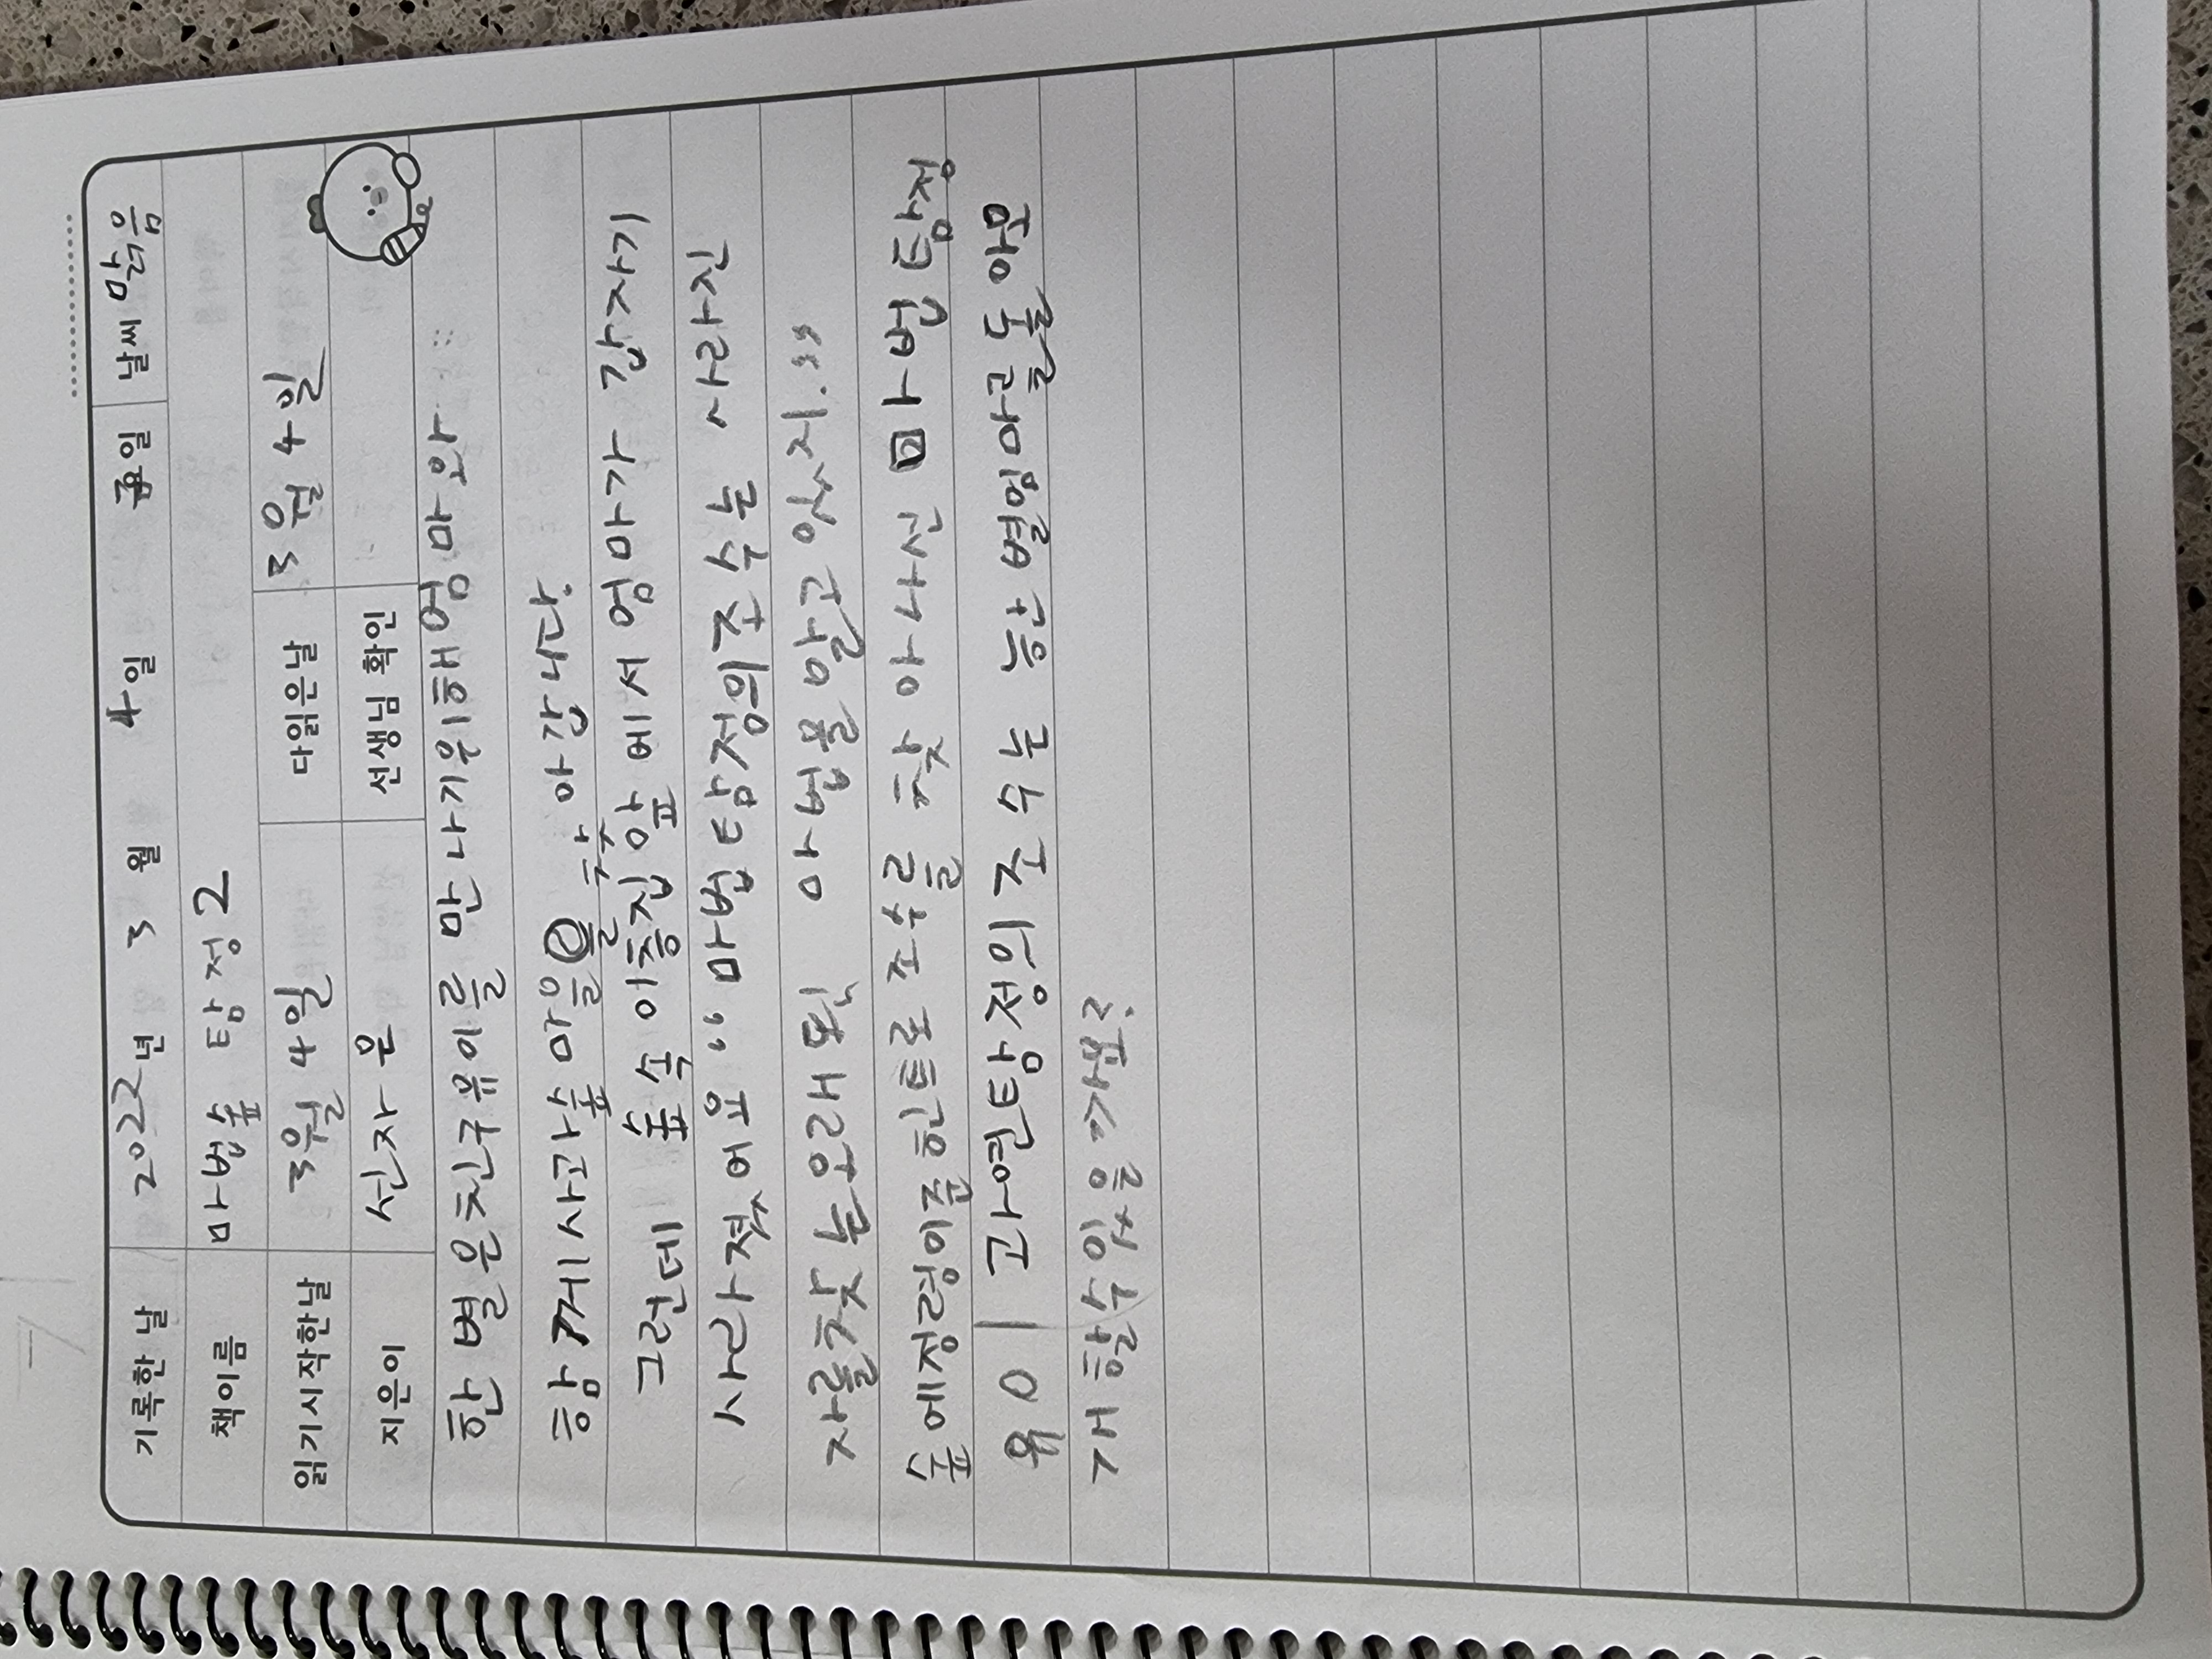 기록한 날 2022년 3월 4일 금요일 날씨 맑음
책이름 마법숲 탐정2
읽기시작한날 3월 4일 다읽은날 3월 4일
지은이 선자은 선생님 확인
한별은친구유이를 만나기위해엄마와
함께사과숲마을을 찾아갑니다.
그런데 숲속이층집앞에서 엄마가 갑자기
사라졌어요 “마법탐정의조수는 사라진
자를찾는오래된 마법을 알고있지.”
숲에정령이준힌트로 조수를 찾아나선 마법탐정
유이 과연탐정의 조수는 한별엄마를돌아오
개할수있을까요?